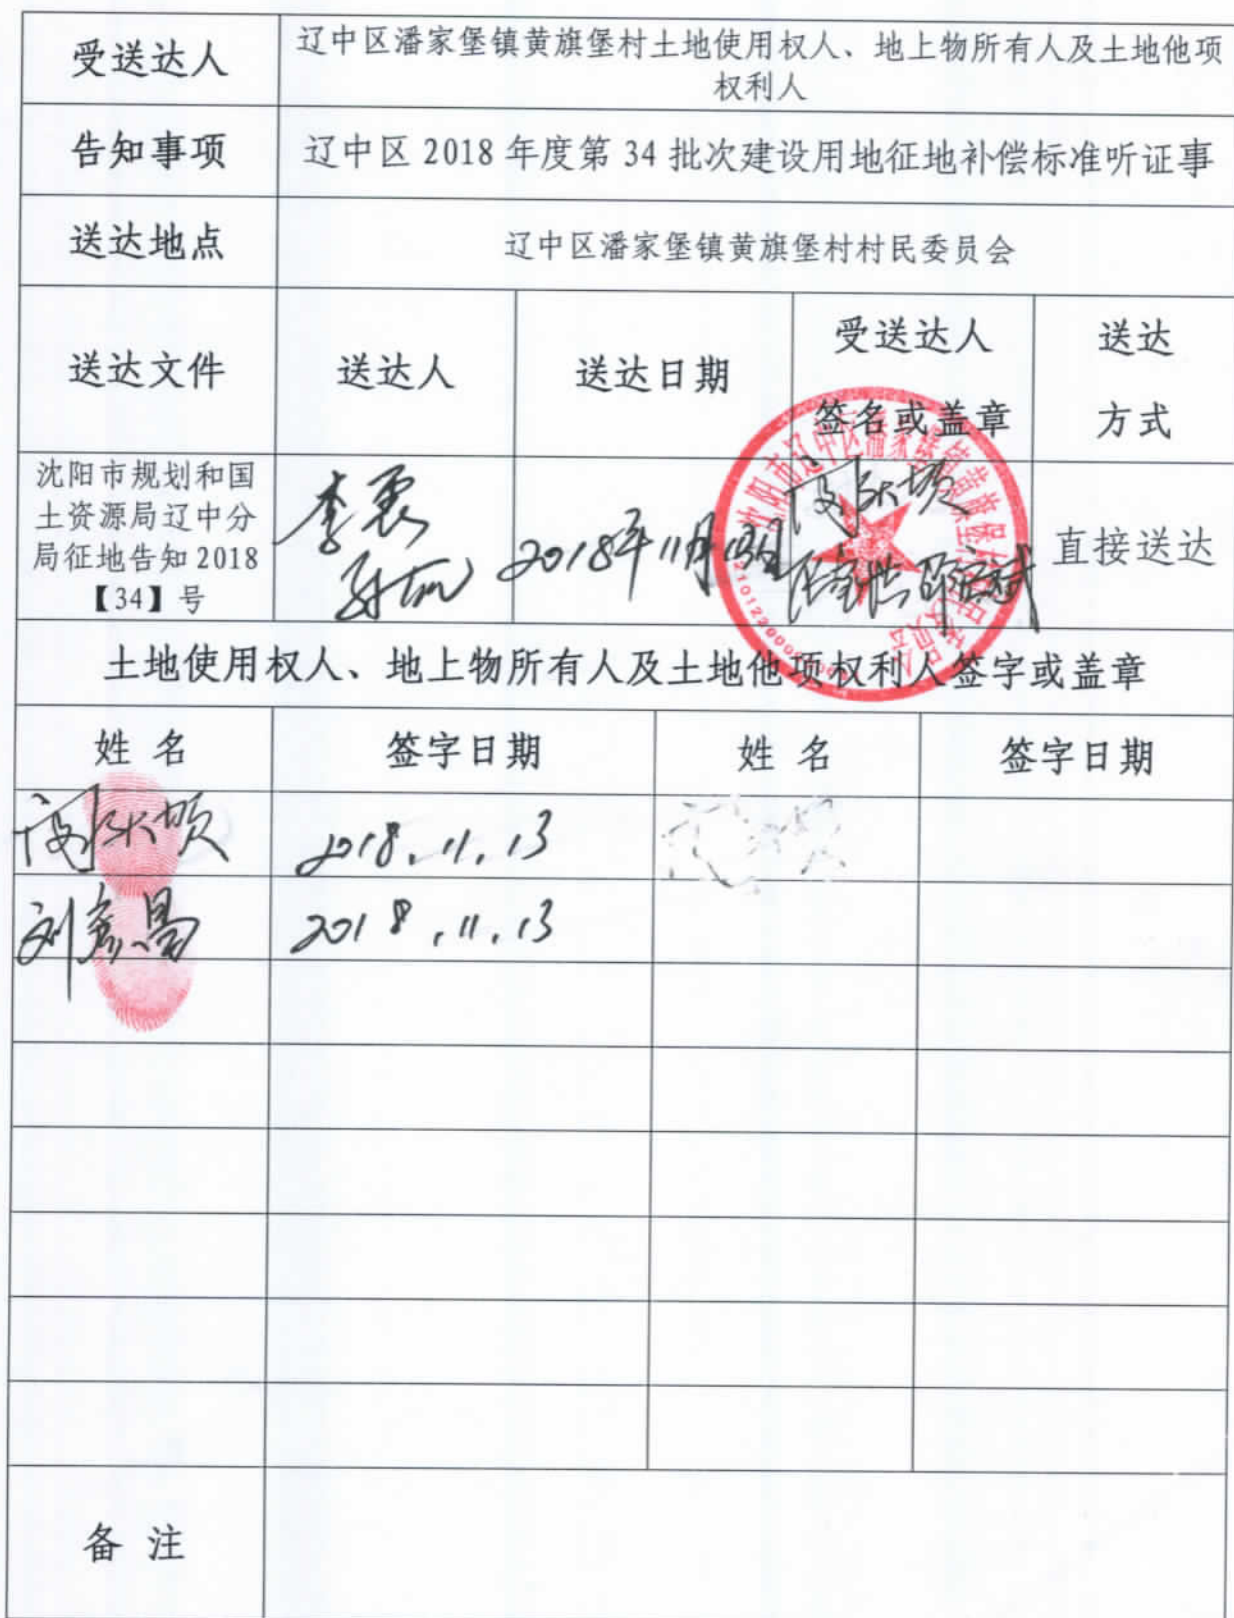 受送达人
辽中区潘家堡镇黄旗堡村土地使用权人、地上物所有人及土地他项
权利人
告知事项
辽中区 2018 年度第 34 批次建设用地征地补偿标准听证事
送达地点
辽中区潘家堡镇黄旗堡村村民委员会
送达文件
送达人
送达日期
受送达人
签名或盖章
送达
方式
沈阳市规划和国
土资源局辽中分
局征地告知 2018
【34】号
2018年11月13日
沈阳市辽中区潘家堡镇黄旗堡村村民委员会
直接送达
土地使用权人、地上物所有人及土地他项权利人签字或盖章
姓 名
签字日期
姓 名
签字日期
2018.11.13
刘彦昌
2018.11.13
备 注